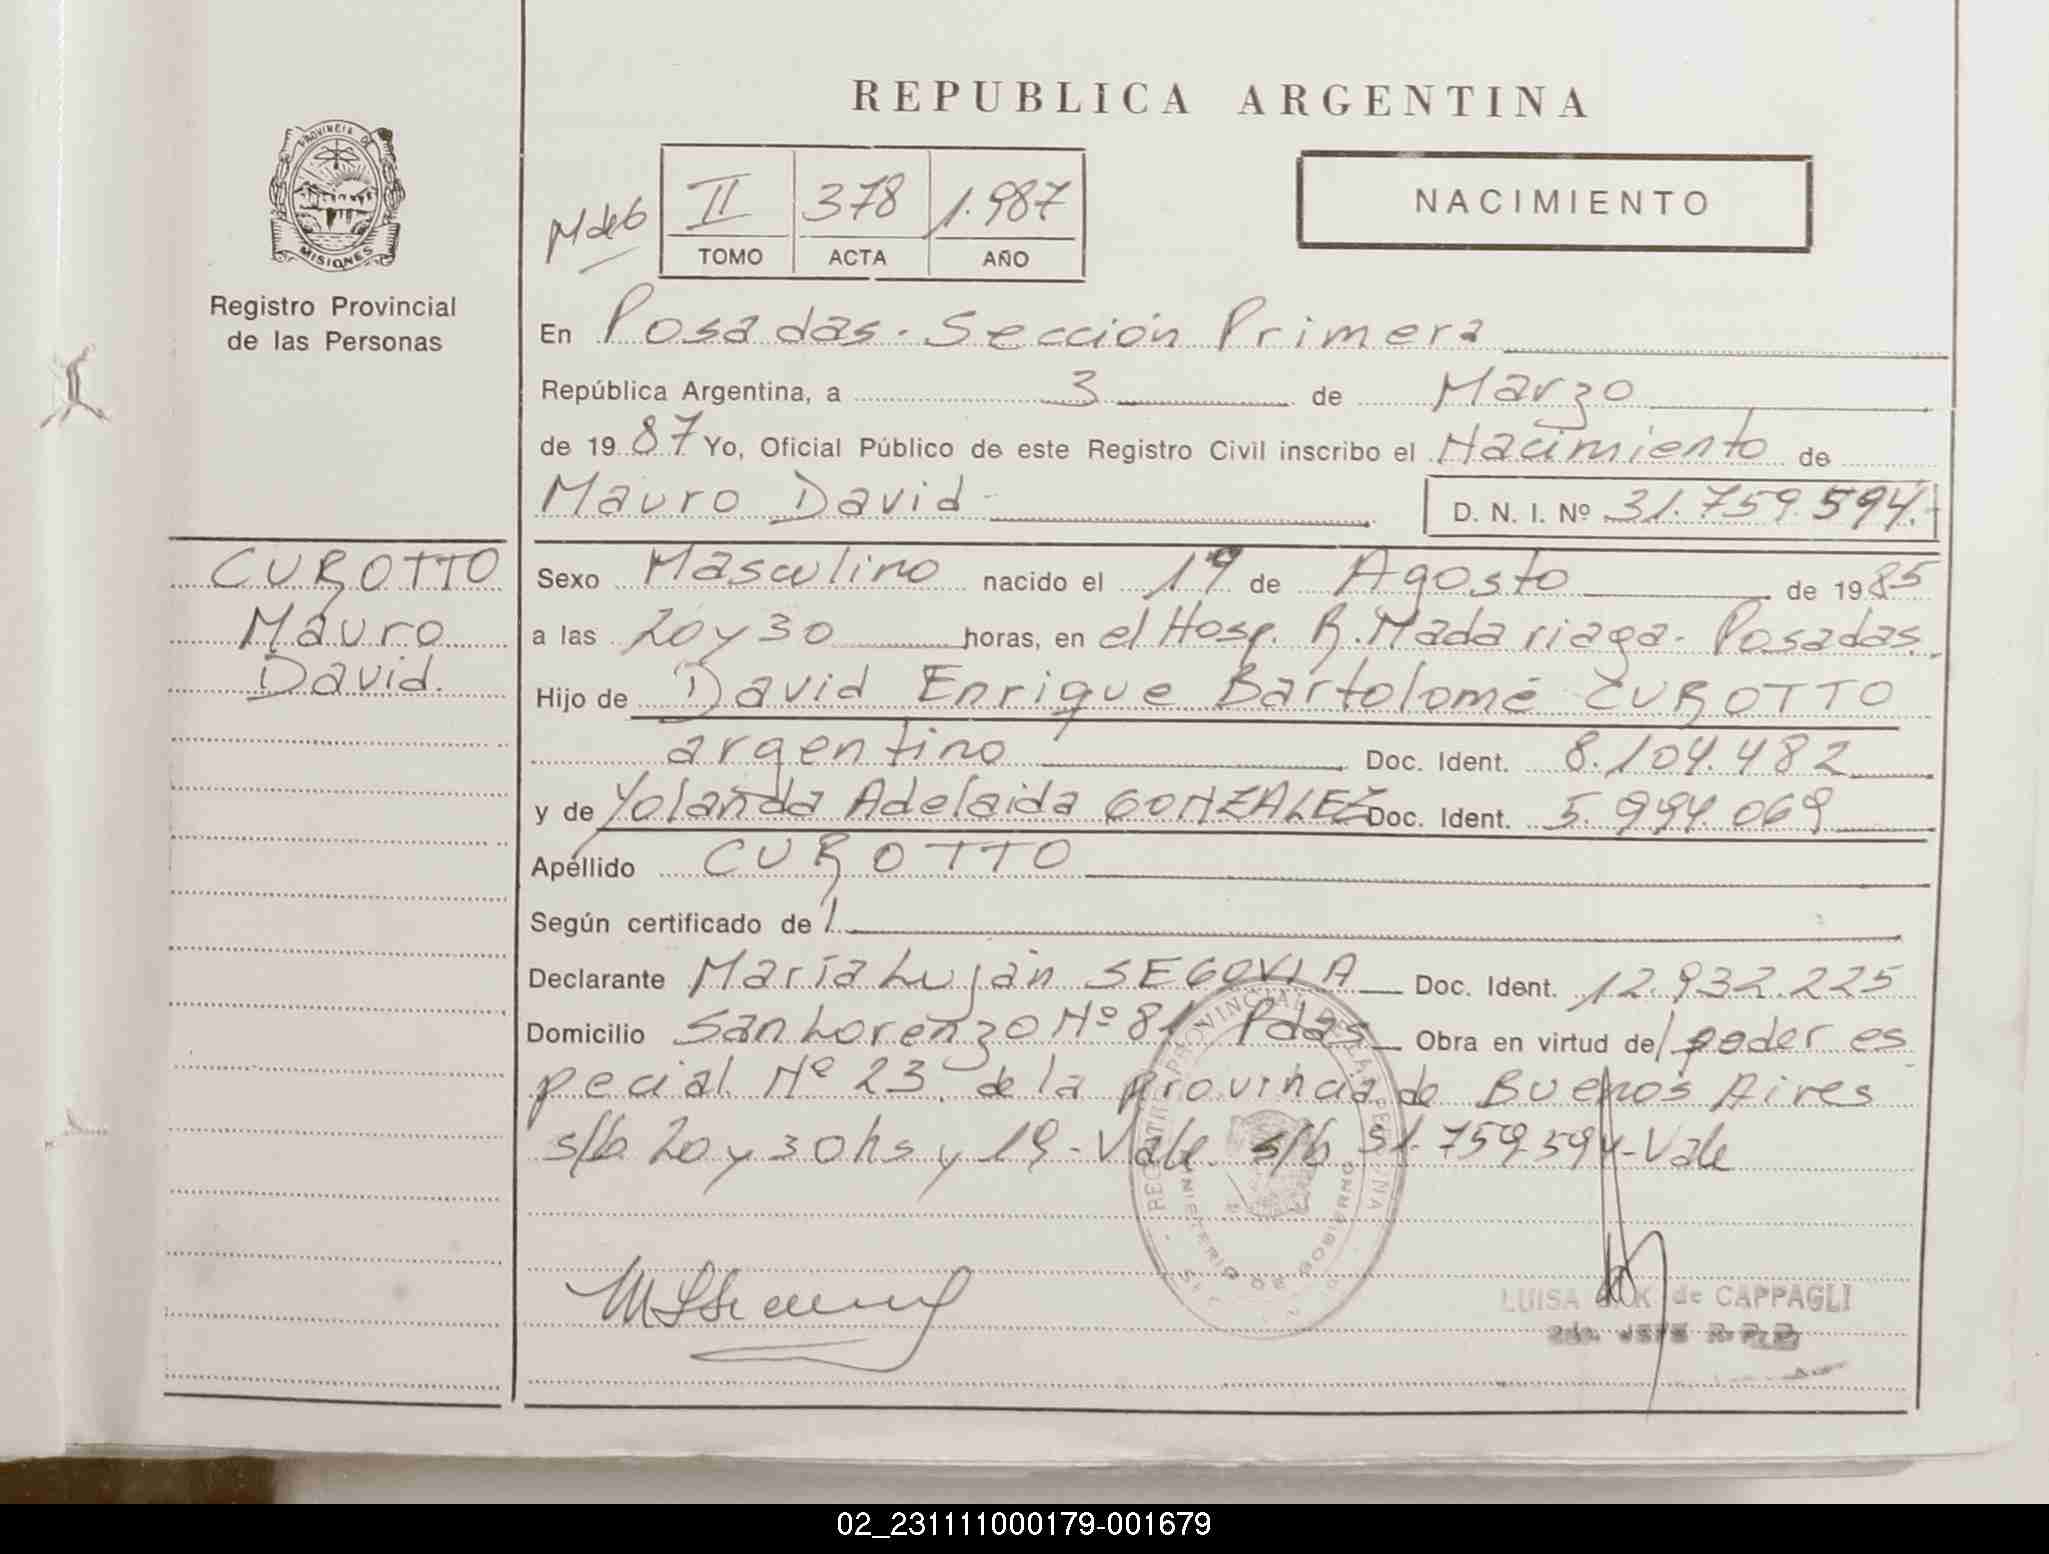 REPUBLICA ARGENTINA
PROVINCIA DE
MISIONES
Registro Provincial
de las Personas
II 378 1.987
TOMO ACTA AÑO
NACIMIENTO
En Posadas - Sección Primera
República Argentina, a 3 de Marzo
de 1987 Yo, Oficial Público de este Registro Civil inscribo el Nacimiento de
Mauro David
D. N. I. Nº 31.759.594.-
CUROTTO
Mauro
David.
Sexo Masculino nacido el 19 de Agosto de 1985
a las 20 y 30 horas, en el Hosp. R. Madariaga - Posadas.
Hijo de David Enrique Bartolomé CUROTTO
argentino Doc. Ident. 8.104.482
y de Yolanda Adelaida GONZALEZ Doc. Ident. 5.994.069
Apellido CUROTTO
Según certificado de
Declarante María Luján SEGOVIA Doc. Ident. 12.932.225
Domicilio San Lorenzo Nº 81 Pdas Obra en virtud de poder es
pecial Nº 23 de la provincia de Buenos Aires
s/b 20 y 30 hs y 19 - Vale s/b 31.759.594 - Vale
MINISTERIO DE GOBIERNO
LUISA de CAPPAGLI
02_231111000179-001679